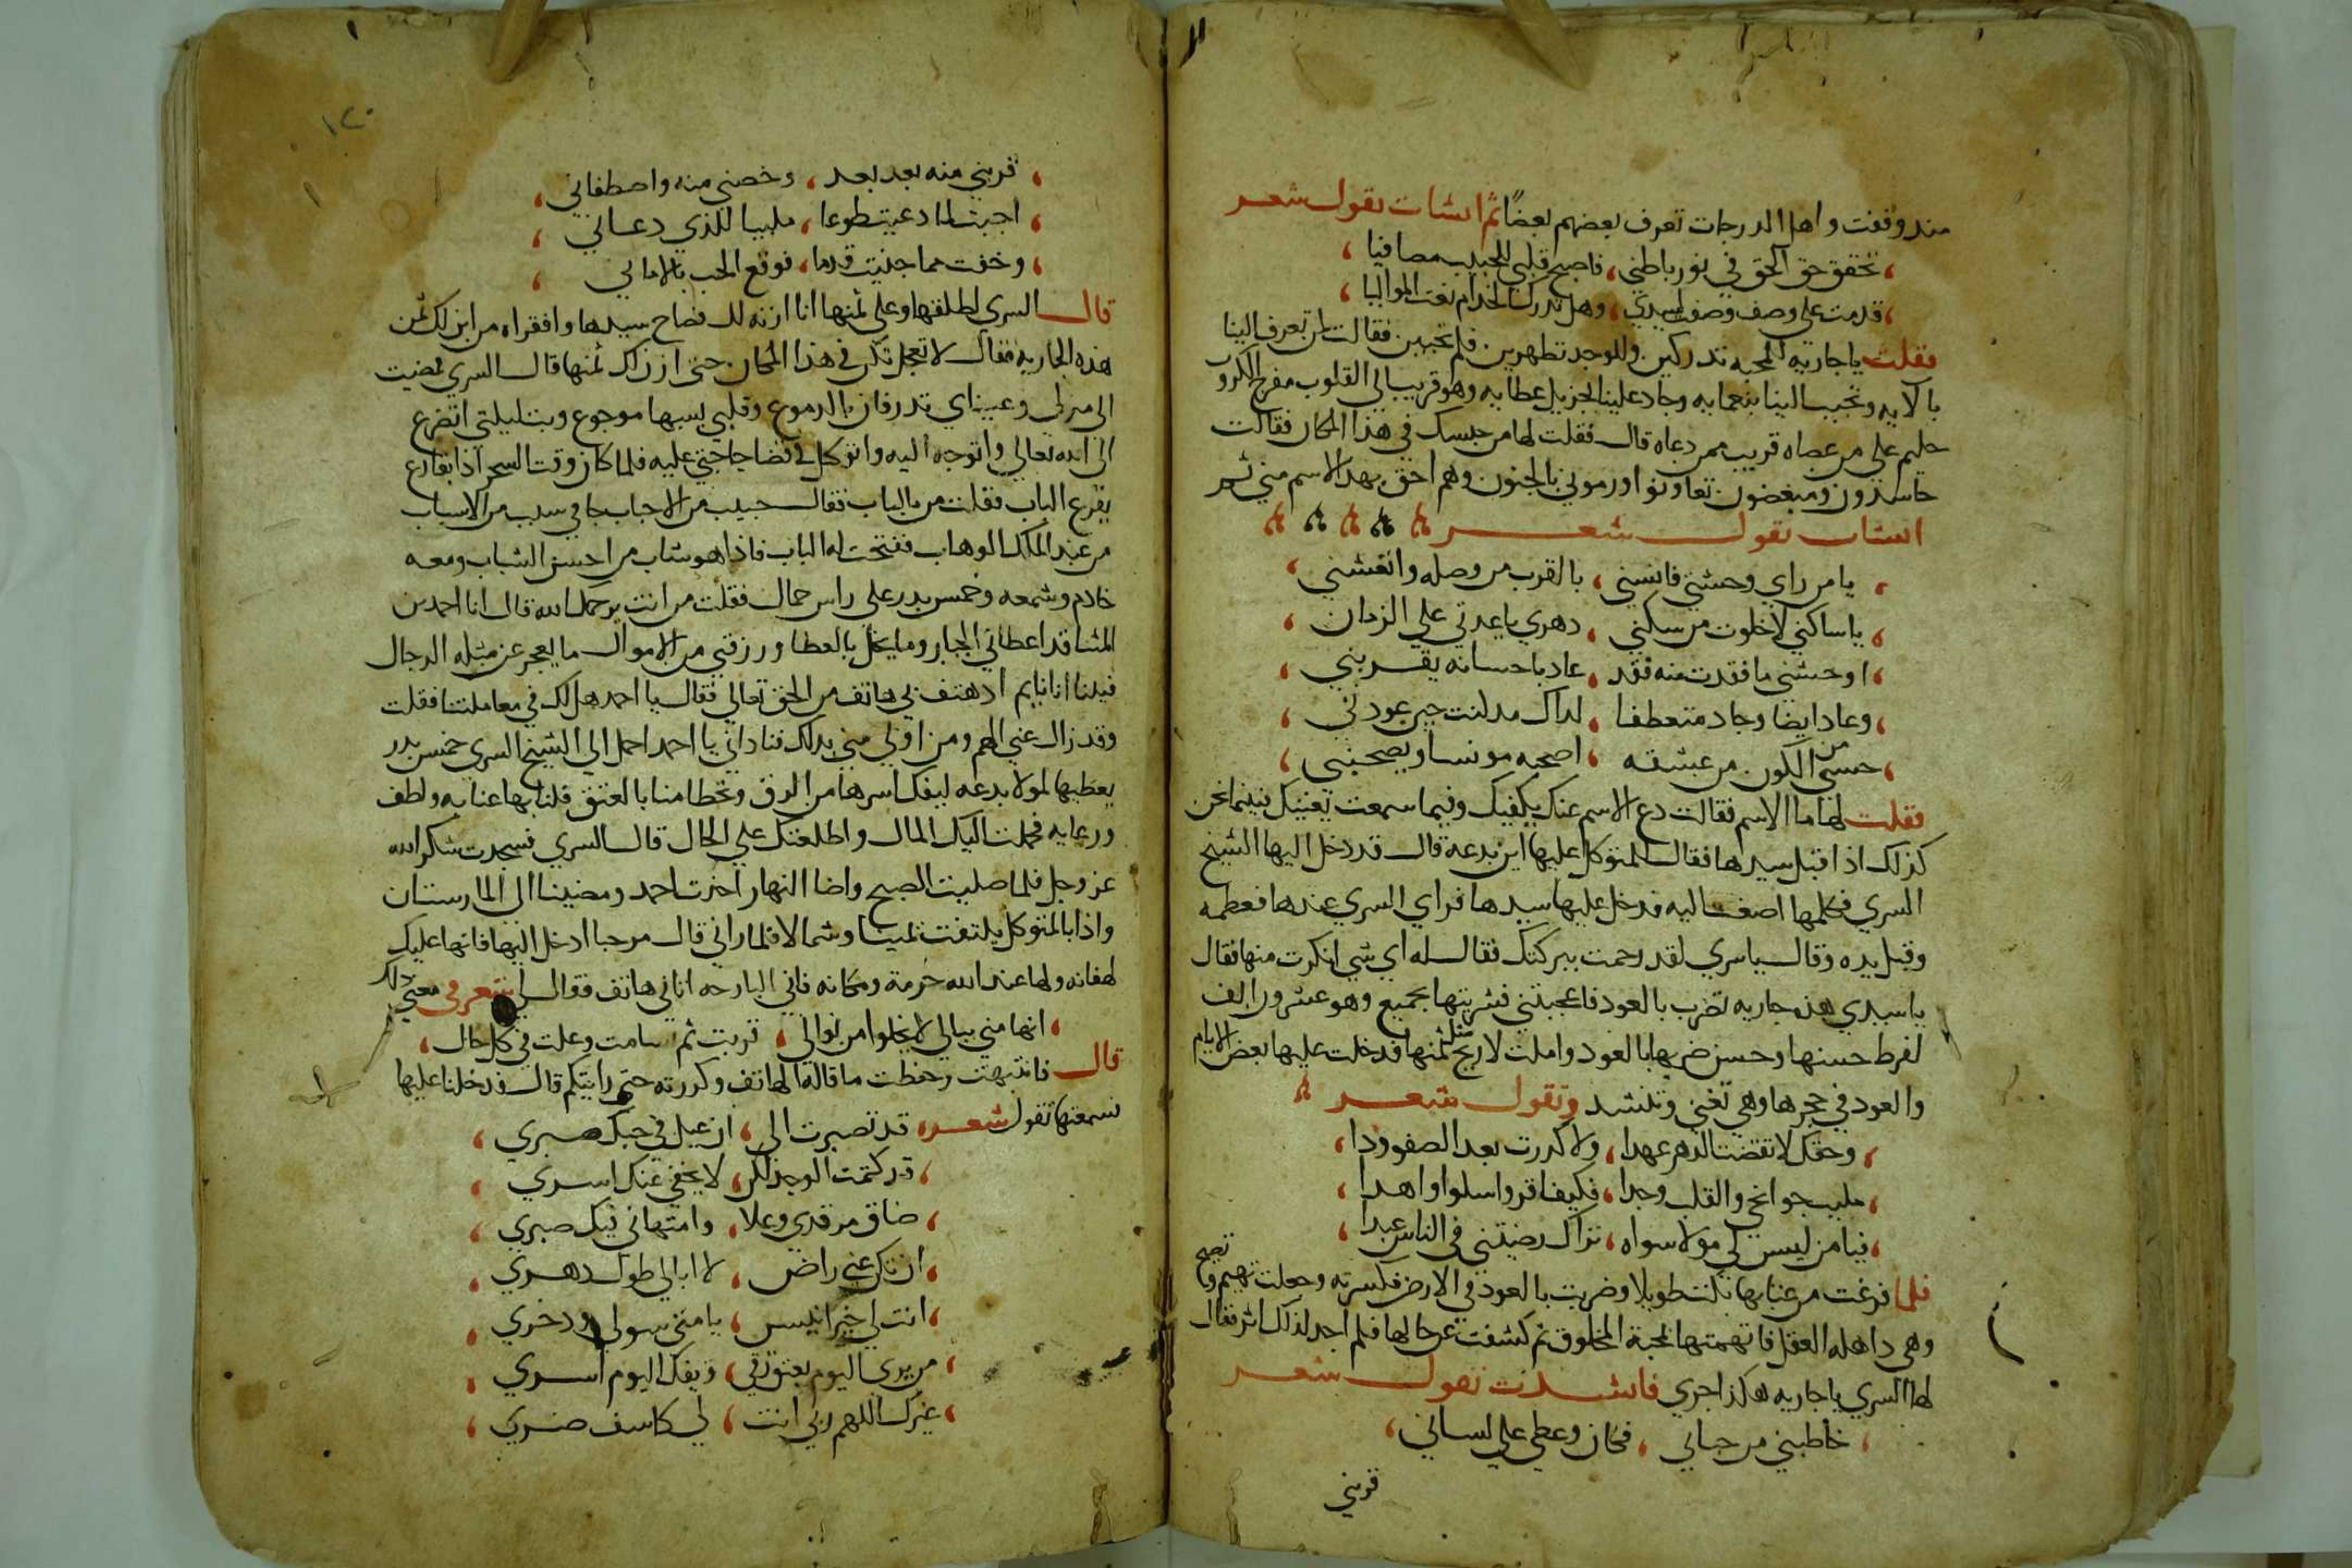 مند وقفت واهل الدرجات تعرف بعضهم بعضًا ثم انشات تقول شعر
تحقق حق الحق في نور باطني، فاصبح قلبي للحبيب مصافيا
قدمت على وصف وصفت لسيدي، وهل تدرك الخدام نعت المواليا
فقلت يا جاريه للمحبه تدركين وللوجد تظهرين فلم تحبين فقالت لمن تعرف الينا
بالايه وتحبب الينا بنعمايه وجاد علينا الجزيل عطايه وهو قريب الى القلوب مفرج الكرو
حليم على من عصاه قريب ممن دعاه قال فقلت لها من حبسك في هذا المكان فقالت
حاسدون ومبغضون تعاونوا ورموني بالجنون وهم احق بهذا الاسم مني ثم
انشات تقول شعر
يا من راي وحشتي فانسني، بالقرب من وصله وانعشني
يا ساكني لاخلوت من سكني، دهري يا عدتي علي الزمان
اوحشني ما فقدت منه فقد، عاد باحسانه يقربني
وعاد ايضا وجاد متعطفا، لداك مدلنت حين عودني
حسبي من الكون من عبشقه، اصحبه مونسا ويصحبني
فقلت لها ما الاسم فقالت دع الاسم عنك يكفيك وفيما سمعت يغنيك فبينما نحن
كذلك اذا قبل سيدها فقال للمتوكل عليها اين بدعه قال قد دخل اليها الشيخ
السري فكلمها اصغت اليه فدخل عليها سيدها فراي السري عندها فعظمه
وقبل يده وقال يا سري لقد رحمت ببركتك فقال له اي شي انكرت منها فقال
يا سيدي هذه جاريه تضرب بالعود فاعجبتني فشريتها بجميع وهو عشرون الف
لفرط حسنها وحسن ضربها بالعود واملت لا ربح مثل ثمنها فدخلت عليها بعض الايام
والعود في حجرها وهي تغني وتنشد وتقول شعر
وحقك لا نقضت الدهر عهدا، ولا كدرت بعد الصفو ودا
مليت جوانحي والقلب وجدا، فكيف اقر واسلوا واهدا
فيا من ليس لي مولا سواه، تراك رضيتني في الناس عبدا
فلما فرغت من غنايها بكت طويلا وضربت بالعود في الارض فكسرته وجعلت تهيم وتصيح
وهي داهله العقل فاتهمتها لمحبة المخلوق ثم كشفت عن حالها فلم اجد لذلك اثر فقال
لها السري يا جاريه هكذا جري فانشدت تقول شعر
خاطبني من جباني، فكان وعظي على لساني
قربني
١٢٠
قربني منه بعد بعد، وخصني منه واصطفاني
اجبت لما دعيت طوعا، ملبيا للذي دعاني
وخفت مما جنيت قدما، فوقع الحب بالاماني
قال السري لطلقها وعلي ثمنها انا ازنه لك فصاح سيدها وا فقراه من اين لك ثمن
هذه الجاريه فقال لا تعجل تكن في هذا المكان حتى ازن لك ثمنها قال السري فمضيت
الى منزلي وعيناي تدرفان بالدموع وقلبي بسببها موجوع وبت ليلتي اتضرع
الى الله تعالي واتوجه اليه واتوكل في قضا حاجتي عليه فلما كان وقت السحر اذا بقارع
يقرع الباب فقلت من بالباب فقال حبيب من الاحباب جا في سبب من الاسباب
من عند الملك الوهاب ففتحت له الباب فاذا هو شاب من احسن الشباب ومعه
خادم وشمعه وخمس بدر على راس حمال فقلت من انت يرحمك الله قال انا احمد بن
المثنا قد اعطاني الجبار وما بخل بالعطا ورزقني من الاموال ما يعجز عن مثله الرجال
فبينا انا نايم اد هتف بي هاتف من الحق تعالي فقال يا احمد هل لك في معاملتنا فقلت
وقد زال عني الهم ومن اولي مني بدلك فناداني يا احمد احمل الى الشيخ السري خمس بدر
يعطيها لمولا بدعه ليفك اسرها من الرق وتحظا منا بالعتق فلنا بها عنايه ولطف
ورعايه فحملت اليك المال واطلعتك على الحال قال السري فسجدت شكرا لله
عز وجل فلما صليت الصبح واضا النهار اخذت احمد ومضينا الى المارستان
واذا بالمتوكل يلتفت يمينا وشمالا فلما راني قال مرحبا ادخل اليها فانها عليك
لهفانه ولها عند الله حرمة ومكانه فاني البارحه اتاني هاتف فقال لي شعر في معني ذلك
انها مني ببالي لا يخلوا من نوالي، قربت ثم سامت وعلت في كل حال
قال فانتبهت وحفظت ما قاله الهاتف وكررته حتى رايتكم قال فدخلنا عليها
نسمعتها تقول شعر، قد تصبرت الى، ان عيل في حبك صبري
قد كتمت الوجد لكن، لا يخفي عنك اسري
ضاق من قدي وعلا، وامتهاني فيك صبري
ان تكن عني راض، لا ابالي طول دهري
انت لي خير انيس، يا مني سولي ودخري
من يرى اليوم بعتق رقي، ويفك اليوم اسري
غيرك اللهم ربي انت، لي كاشف ضري